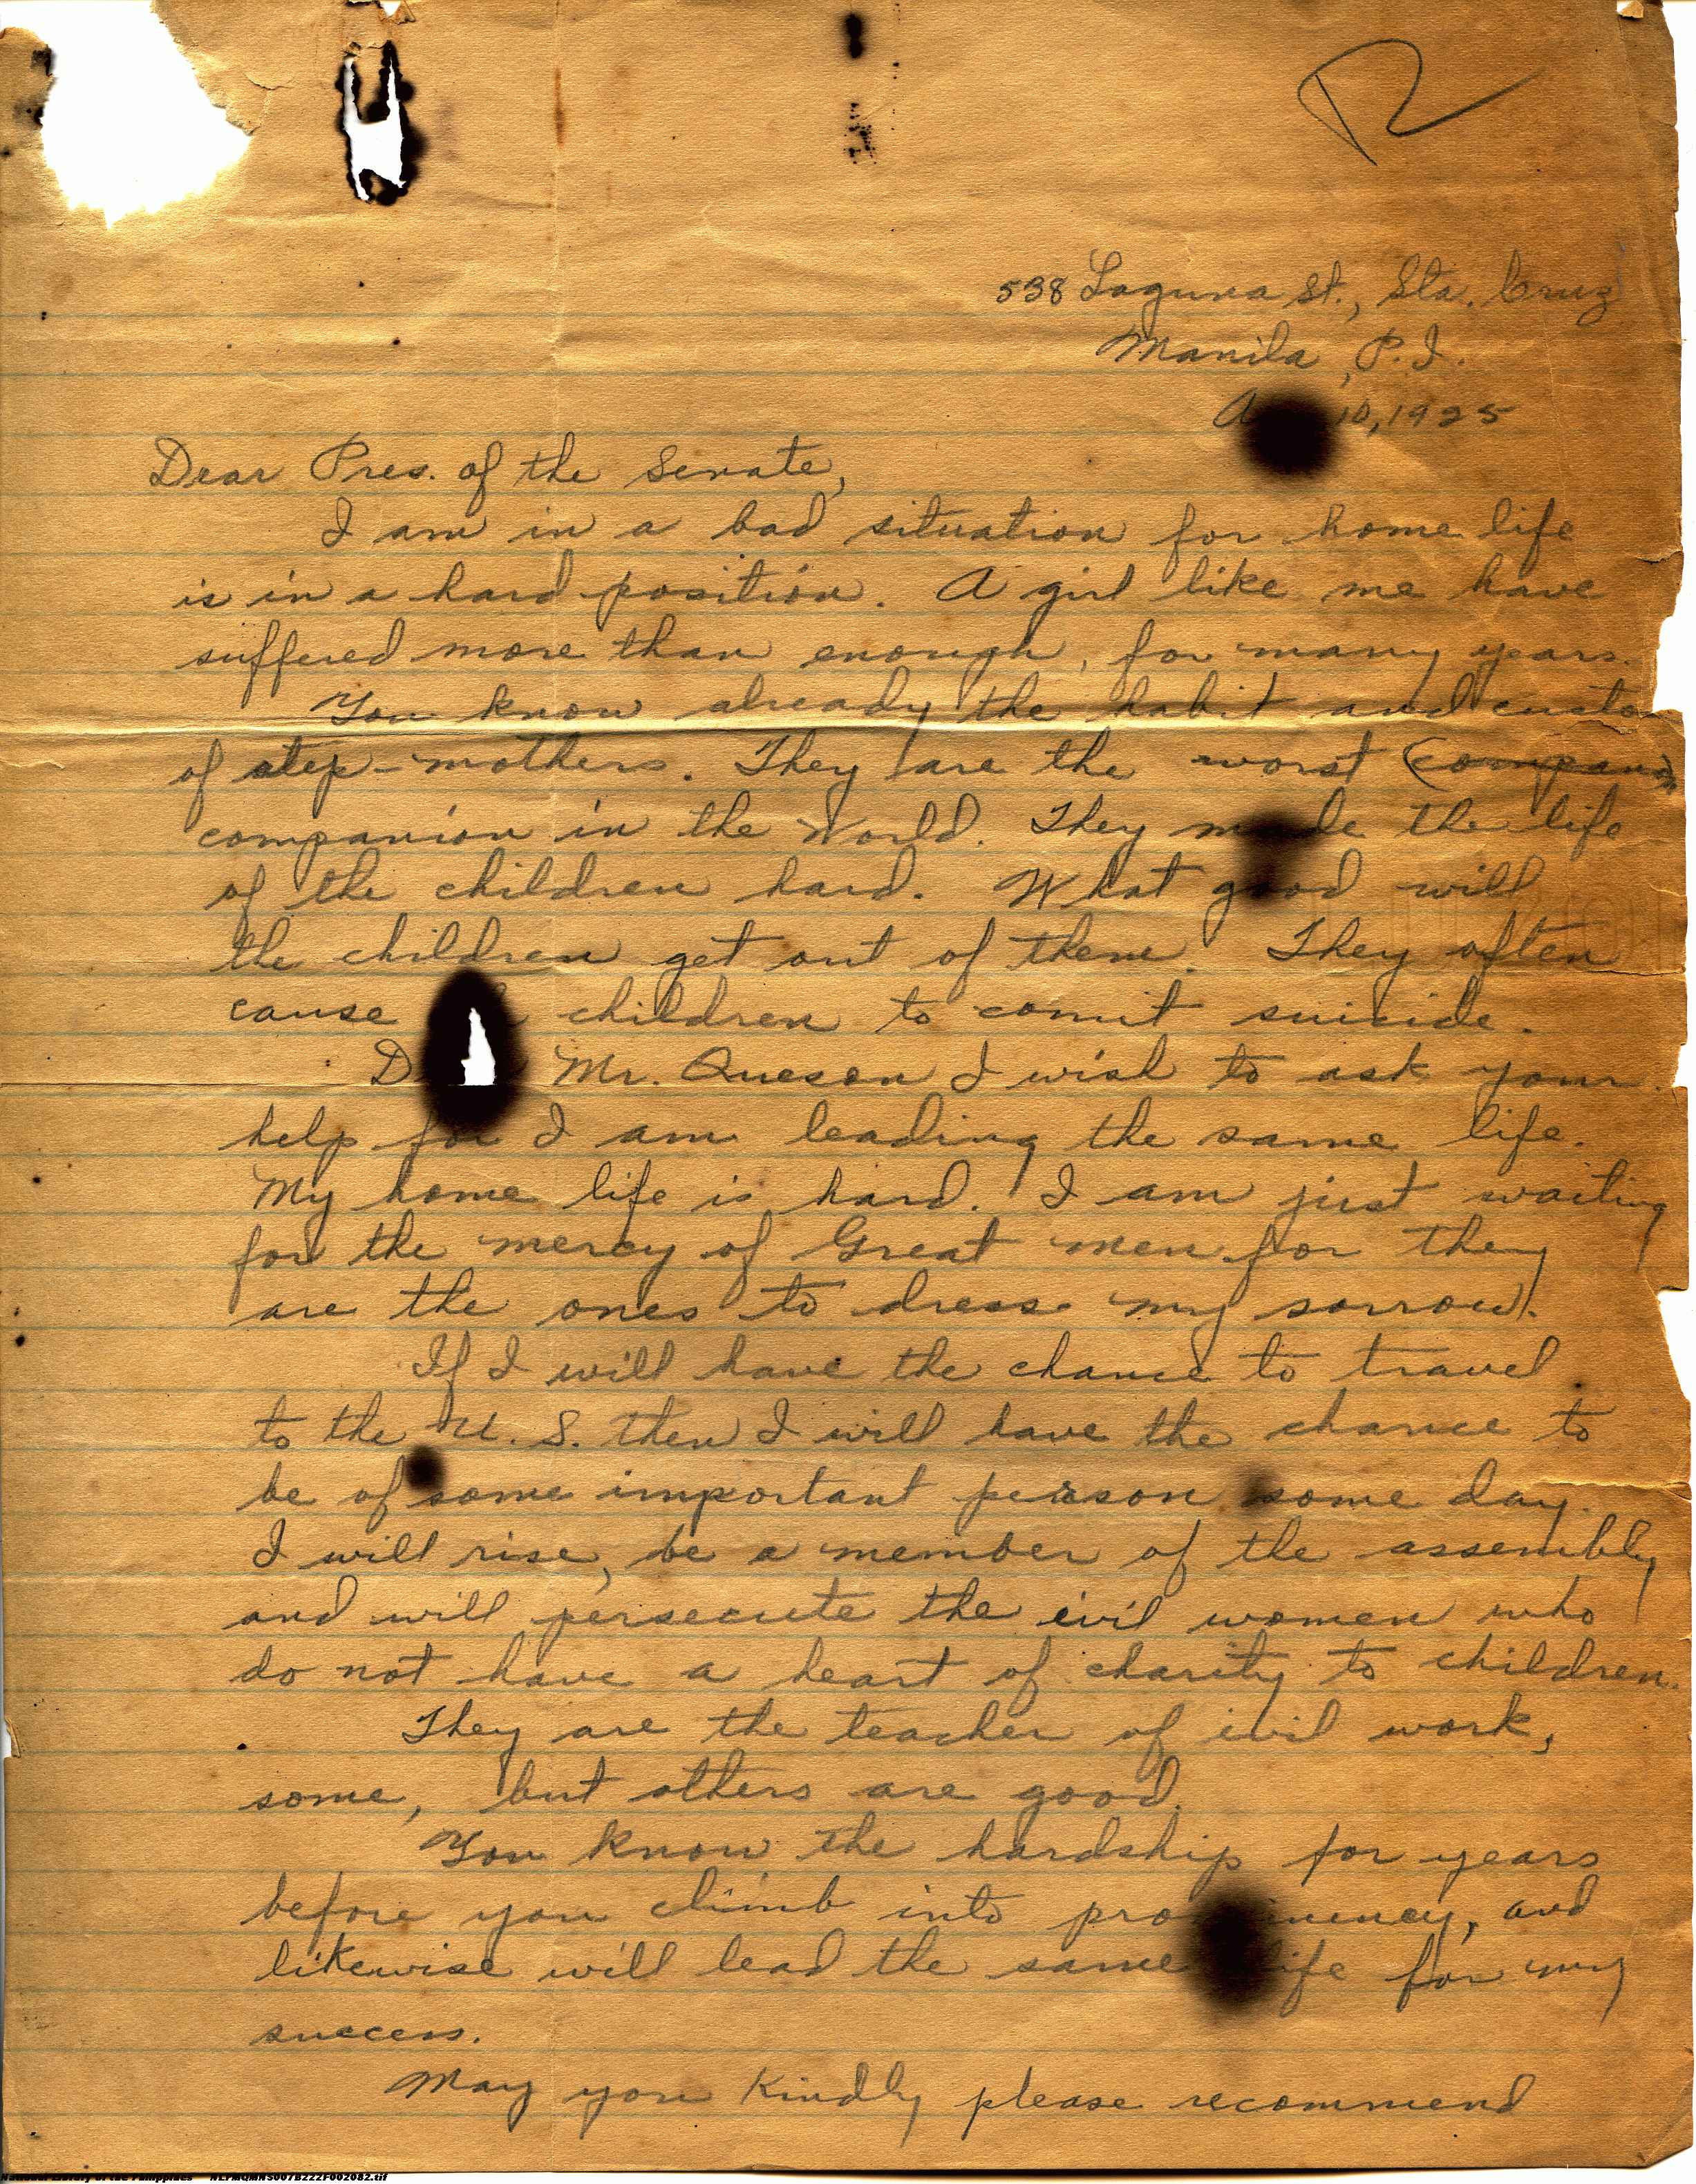 538 Laguna St., Sta. Cruz
Manila, P.I.
10, 1925
Dear Pres. of the Senate,
I am in a bad situation for home life
is in a hard position. A girl like me have
suffered more than enough, for many years.
You know already the habit and custo
of step-mothers. They are the worst (compani
companion in the World. They made the life
of the children hard. What good will
the children get out of them. They often
cause children to comit suicide.
Mr. Queson I wish to ask your
help for I am leading the same life.
My home life is hard. I am just waiting
for the mercy of Great men for they
are the ones to dress my sorrow.
If I will have the chance to travel
to the U. S. then I will have the chance to
be of some important person some day.
I will rise, be a member of the assembly
and will persecute the evil women who
do not have a heart of charity to children.
They are the teacher of ivil work,
some, but others are good.
You know the hardship for years
before you climb into prominency, and
likewise will lead the same life for my
success.
May you kindly please recommend